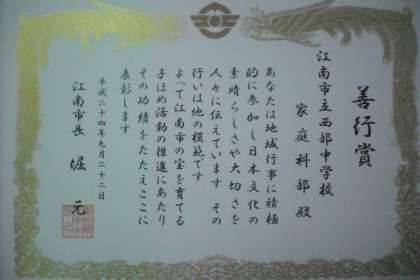 善行賞
江南市立西部中学校
家庭科部殿
あなたは地域行事に積極
的に参加し日本文化の
素晴らしさや大切さを
人々に伝えています その
行いは他の模範です
よって江南市の宝を育てる
子ほめ活動の推進にあたり
その功績をたたえここに
表彰します
平成二十四年九月二十二日
江南市長 堀 元